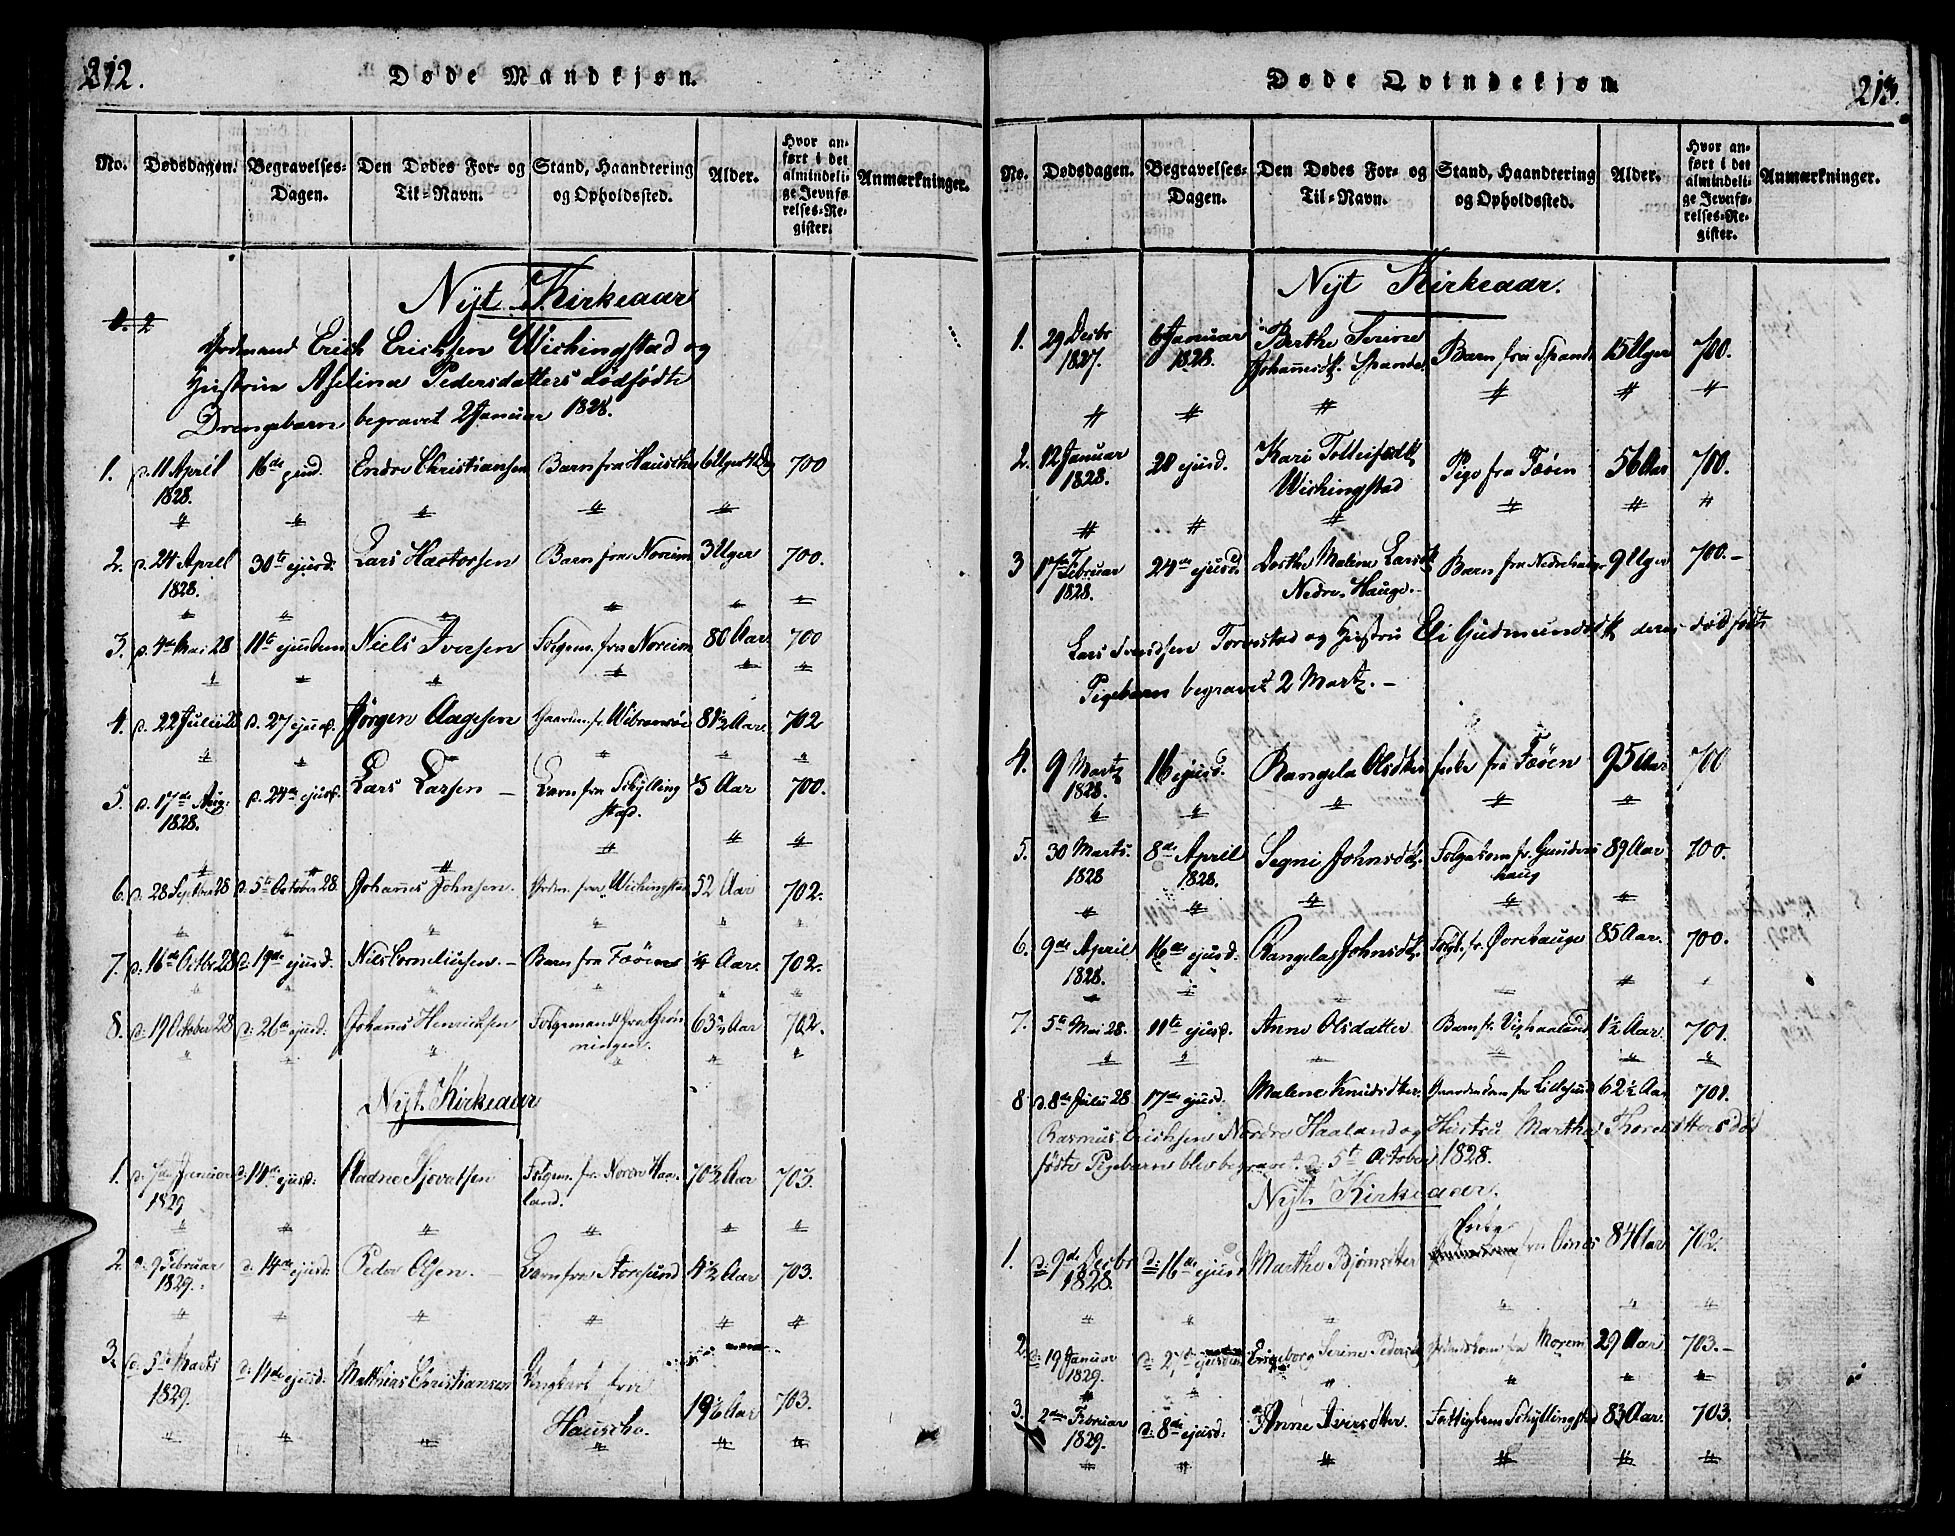 212.
Døde Mandkjøn.
No. Dødsdagen. Begravelses-Dagen. Den Dødes For- og Til-Navn. Stand, Haandtering og Opholdssted. Alder. Hvor anført i det almindelige Jevnførelses-Register. Anmærkninger.
Nyt Kirkeaar
Erich Erichsen Wichingstad og
Hustrue Aselina Pedersdatters dødfødte
Drengebarn begravet 2 Januar 1828.
1. d. 11 April 1828. 16de ejusd. Endre Christiansen Barn fra Hausche 6 Uger 700
2. d. 24 April 1828. 30te ejusd. Lars Hactorsen Barn fra Noreim 3 Uger 700.
3. d. 4de Mai 28 11te ejusdem Niels Iversen Folgem. fra Noreim 80 Aar 700
4. d. 22 Julii 28 d. 27 ejusd. Jørgen Aagesen Gaardm. fr. 81½ Aar 702
5. d. 17de Aug. 1828. d. 24de ejusd. Lars Larsen Barn fra Schylling stad. 1/3 Aar 700.
6. d. 28 Septbr 28 d. 5te October 28. Johannes Johnsen. fra Wichingstad 52 Aar 702.
7. d. 16de Octbr 28 d. 19de ejusd. Nils Corneliusen. Barn fra Føøen ¼ Aar. 702.
8. d. 19 October 28 d. 26de ejusd. Johanes Henrichsen Folgemand fra Grønningen. 63½ Aar 702.
Nyt Kirkeaar
1. d. 7de Januar 1829 d. 14de ejusd. Aadne Sjovatsen Folgem. fr. Nordre Haaland. 70½ Aar 703.
2. d. 9 Februar 1829. d. 14de ejusd. Peder Olsen. Barn fra Aoresund 4½ Aar 703.
3. d. 5te Marts 1829. d. 11de ejusd. Matthias Christiansen Ungkarl fra Hausche. 19½ Aar 703.
213.
Døde Qvindekjøn
No. Dødsdagen. Begravelses-Dagen. Den Dødes For- og Til-Navn. Stand, Haandtering og Opholdssted. Alder. Hvor anført i det almindelige Jevnførelses-Register. Anmærkninger.
Nyt Kirkeaar.
1. 29 Decbr 1827. 6 Januar 1828. Berthe Serine Johannesdt. Spande Barn fra Spande 15 Uger 700.
2. 12 Januar 1828. 20 ejusd. Kari Tolleifsdt Wichingstad Pige fra Føøen 56 Aar 700.
3 17de Februar 1828. 24de ejusd. Dorthe Malene Larsdt Nedre Hauge. Barn fra Nedrehauge 9 Uger 700.
Lars Svendsen Torvestad og Hustru Eli Gudmundsdt deres dødfødte
Pigebarn begravet 2 Martz.
4. 9 Martz 1828. 16 ejusd. Rangela Olsdtter fra Føøen 95 Aar 700
5. 30 Marts. 1828 8de April 1828. Segni Johnsdt. Folgekone fr. Gunders haug 89 Aar 700.
6. 9de April 1828. 16de ejusd. Rangela Johnsdt. Folgk. fr. Øvrehauge 85 Aar. 700.
7. 5te Mai 28. 11te ejusd. Anne Olsdatter Barn fr. 1½ Aar. 701.
8 d. 8de Julii 28 17de ejusd. Malene Knudsdtter. Gaardmkone fr. Lillesund 62½ Aar 701.
Rasmus Erichsen Nordre Haaland og Hustru Martha Thoresdtters død
fødte Pigebarn blev begravet d. 5te October 1828.
Nyt Kirkeaar.
1. d. 9de Decbr 1828. d. 16de ejusd Martha Bjørnsdtter fra Osnes 84 Aar 702.
2. d. 19 Januar 1829. d. 27de ejusdem Engeborg Serine Pedersdt fra Norem 29 Aar 703.
3. 2den Februar 1829. d. 8de ejusd. Anne Iversdtter. Fattiglem Schyllingstad 83 Aar. 703.